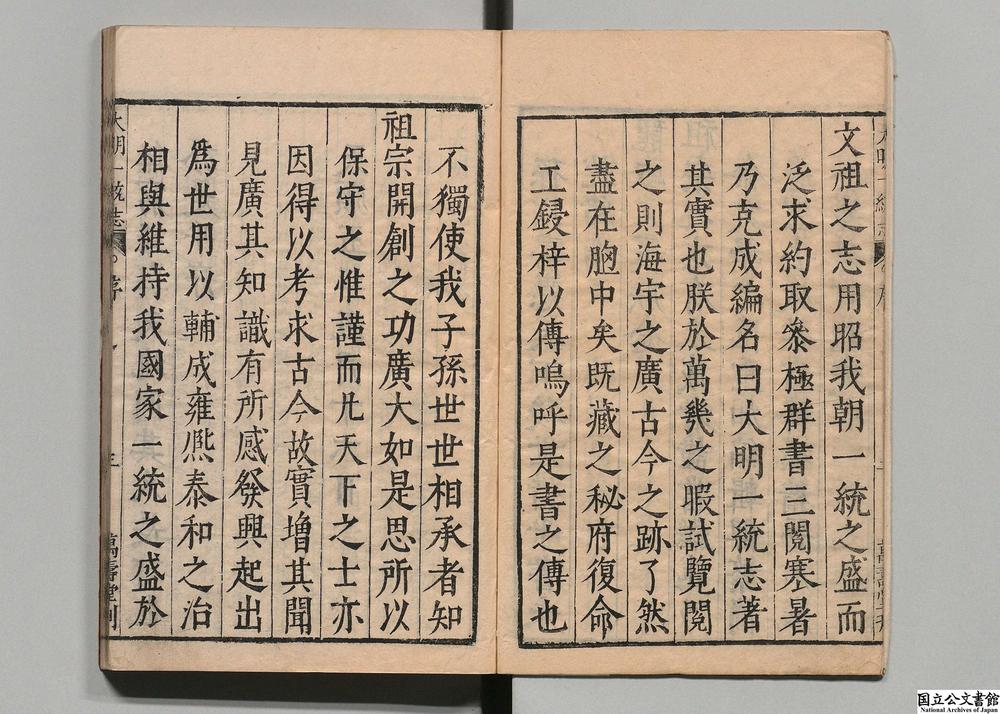 文祖之志用昭我朝一統之盛而
泛求約取參極群書三閱寒暑
乃克成編名曰大明一統志著
其實也朕於萬幾之暇試覽閱
之則海宇之廣古今之跡了然
盡在胷中矣既藏之秘府復命
工鋟梓以傳嗚呼是書之傳也
不獨使我子孫世世相承者知
祖宗開創之功廣大如是思所以
保守之惟謹而凡天下之士亦
因得以考求古今故實增其聞
見廣其知識有所感發興起出
爲世用以輔成雍熈泰和之治
相與維持我國家一統之盛於
大明一統志 序 三 萬壽堂刊
国立公文書館
National Archives of Japan